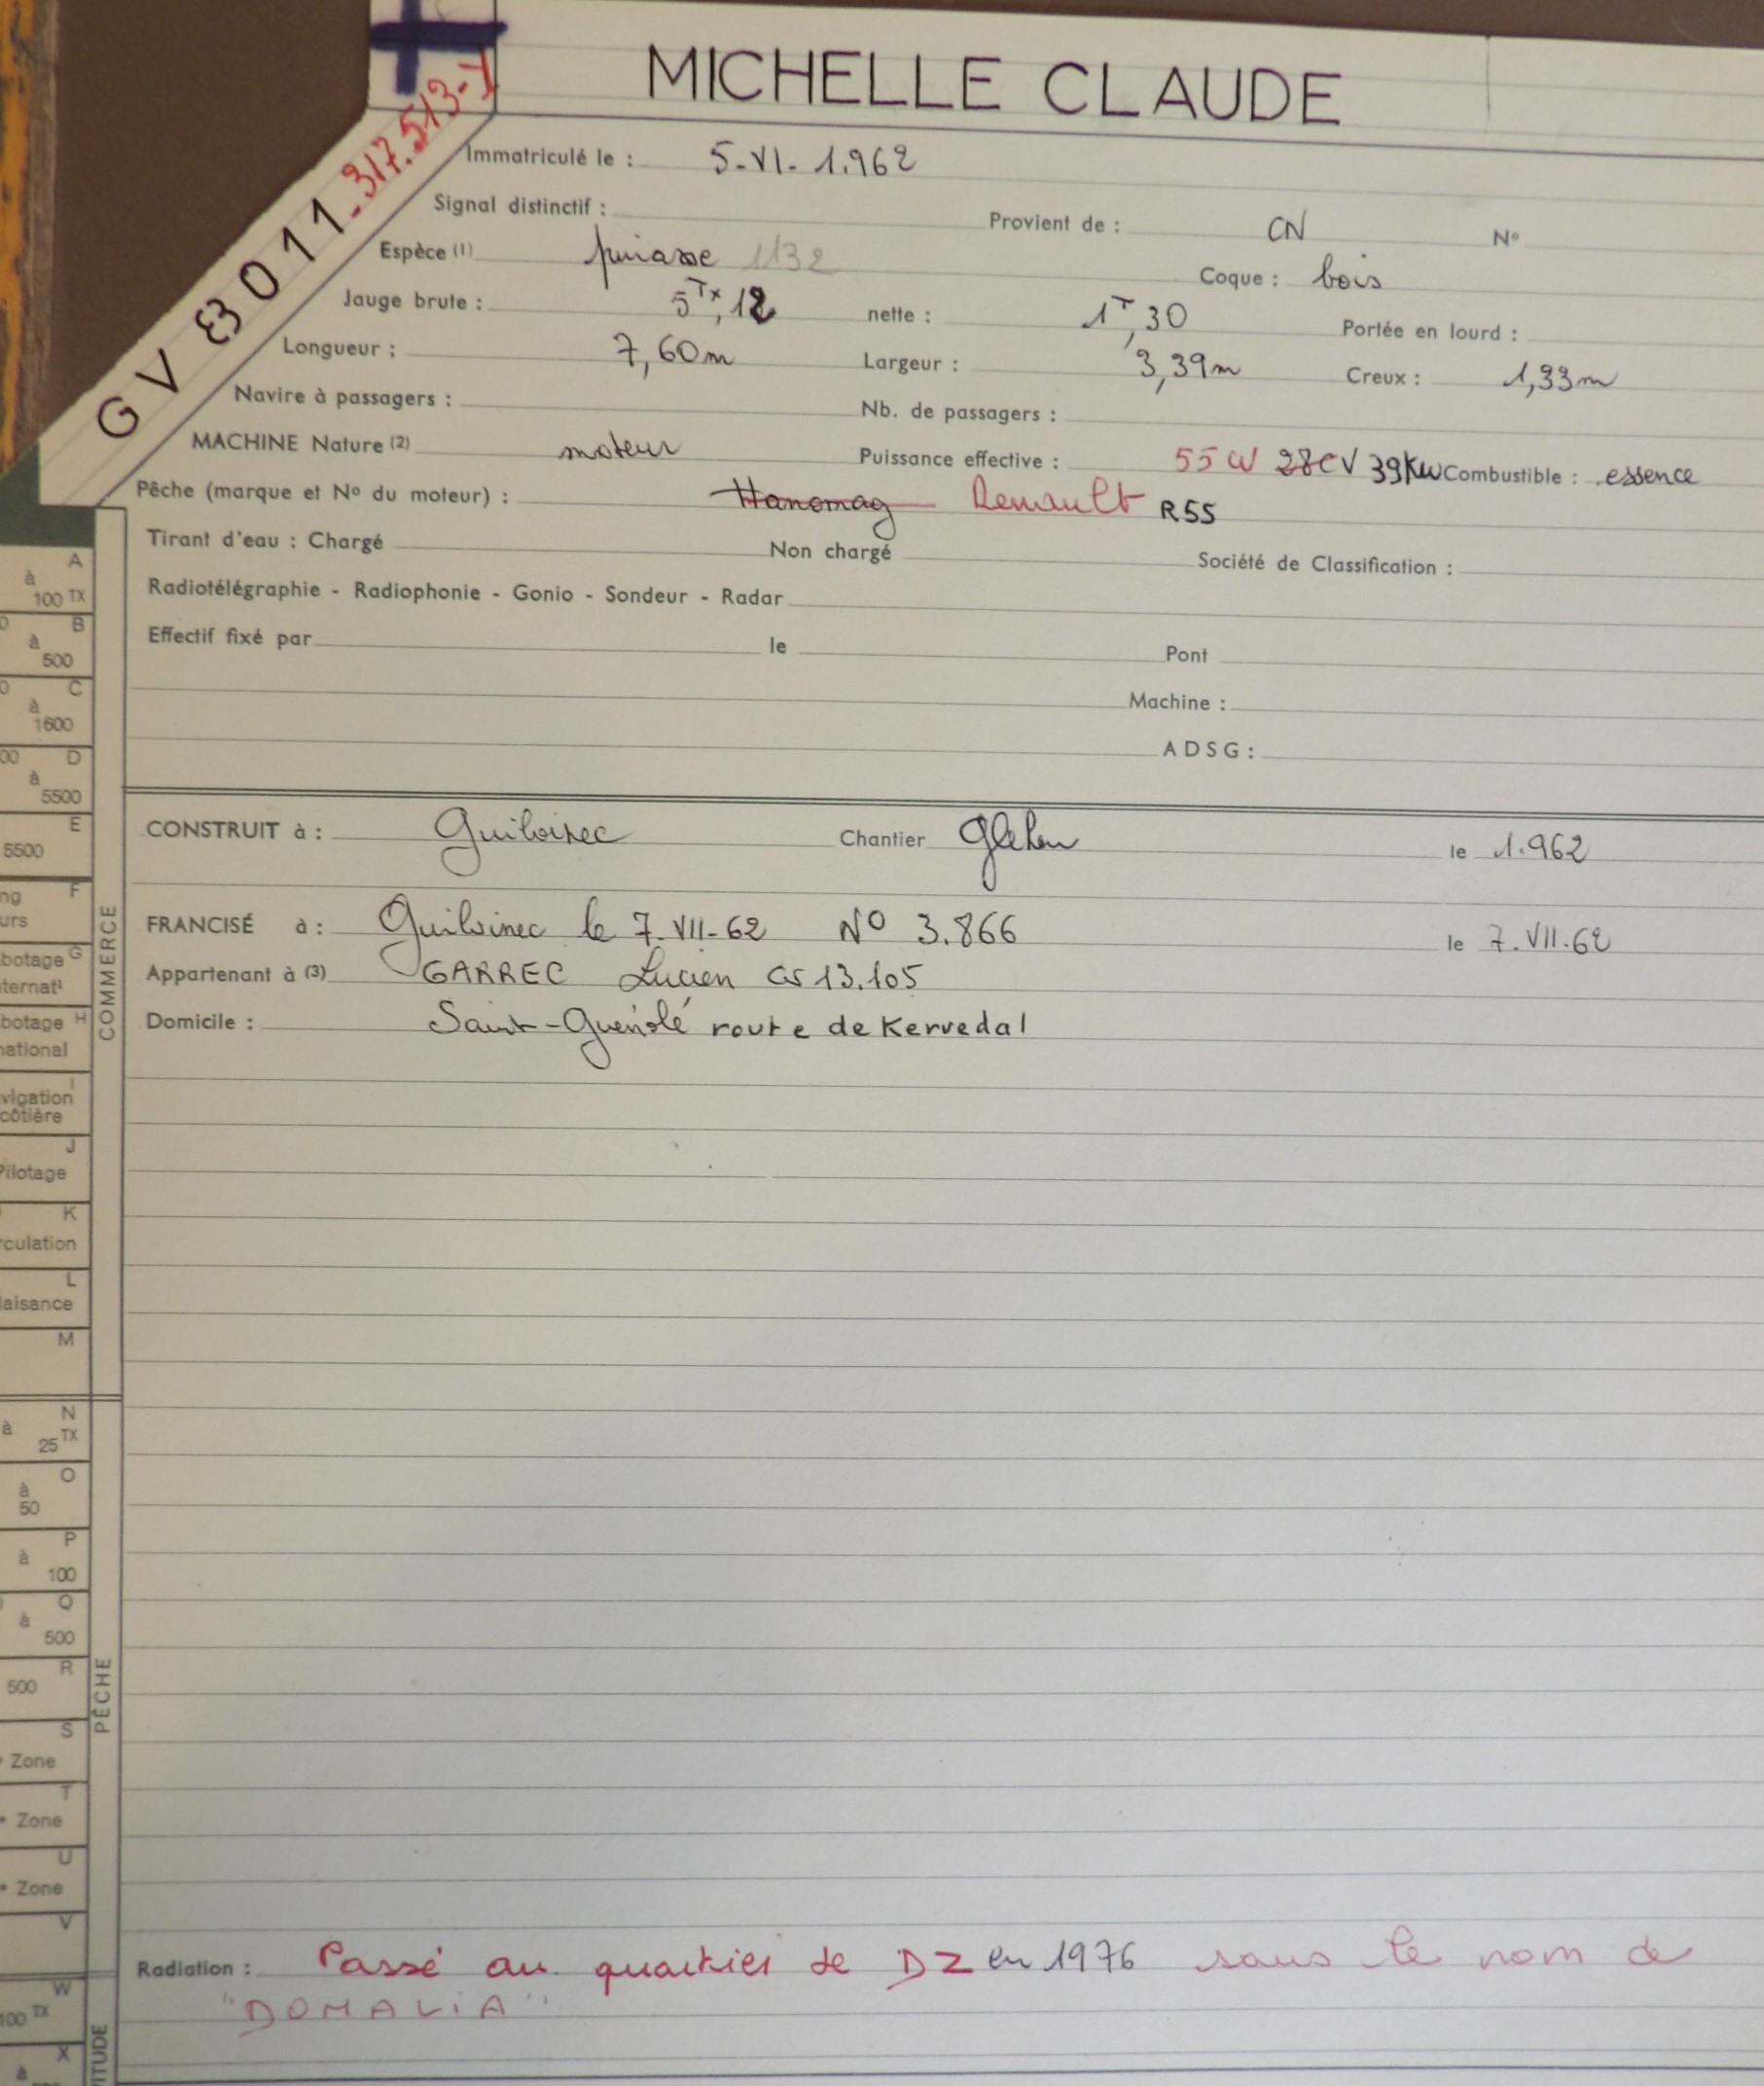 MICHELLE CLAUDE
GV 3011 - 317.513-Y
Immatriculé le : 5-VI-1.962
Signal distinctif : Provient de : CN N°
Espèce (1) pinasse 1132 Coque : bois
Jauge brute : 5Tx,12 nette : 1T,30 Portée en lourd :
Longueur : 7,60m Largeur : 3,39m Creux : 1,33m
Navire à passagers : Nb. de passagers :
MACHINE Nature (2) moteur Puissance effective : 55 CV 28CV 39Kw Combustible : essence
Pêche (marque et N° du moteur) : Hanomag Renault R55
Tirant d'eau : Chargé Non chargé Société de Classification :
Radiotélégraphie - Radiophonie - Gonio - Sondeur - Radar
Effectif fixé par le Pont
Machine :
ADSG :
CONSTRUIT à : Guilvinec Chantier Gléhen le 1.962
FRANCISÉ à : Guilvinec le 7.VII-62 N° 3.866 le 7.VII.62
Appartenant à (3) GARREC Lucien GV 13.105
Domicile : Saint-Guénolé route de Kervedal
Radiation : Passé au quartier de DZ en 1976 sous le nom de
"DOMALIA"
A
à
100 TX
B
à
500
C
à
1600
D
à
5500
E
5500
F
G
H
I
vigation
côtière
J
Pilotage
K
rculation
L
laisance
M
COMMERCE
N
à
25 TX
O
à
50
P
à
100
Q
à
500
R
500
S
Zone
T
Zone
U
Zone
V
PÊCHE
W
100 TX
X
à